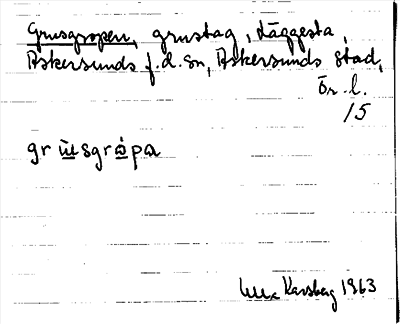 Grusgropen, grustag, Läggesta,
Askersunds f.d. sn, Askersunds stad,
Ör. l.
15
gr ùsgrópa
Karsberg 1963